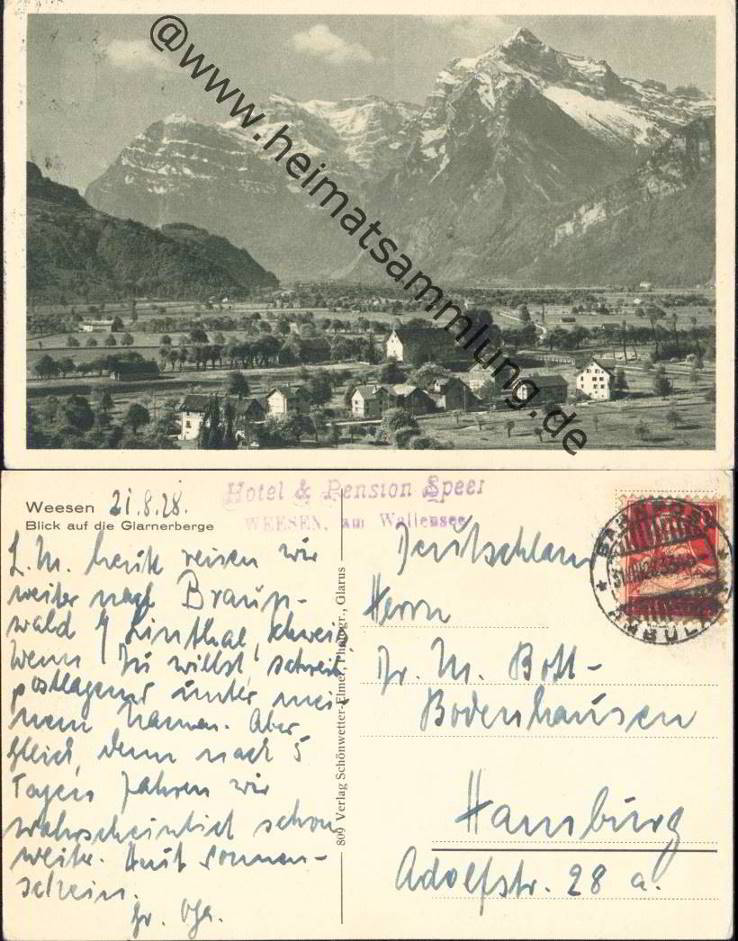 @www.heimatsammlung.de
Weesen 21.8.28.
Blick auf die Glarnerberge
Hotel & Pension Speer
WEESEN, am Wallensee
809 Verlag Schönwetter-Elmer, Photogr., Glarus
BAHNPOST
AMBULANT
L. M. heute reisen wir
weiter nach Braun-
wald Linthal, Schweiz
wenn Du willst schreib
postlagernd unter mei
nem Namen. Aber
gleich, denn nach 5
Tagen fahren wir
wahrscheinlich schon
weiter. Sonnen-
schein.
Gr.
Deutschland
Herrn
Dr. M. Bott-
Bodenhausen
Hamburg
Adolfstr. 28 a.